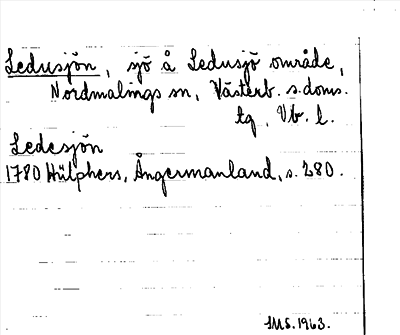 Ledusjön, sjö å Ledusjö område,
Nordmalings sn, Västerb. s. doms.
tg, Vb. l.
Ledesjön
1780 Hülphers, Ångermanland, s. 280.
IMS. 1963.